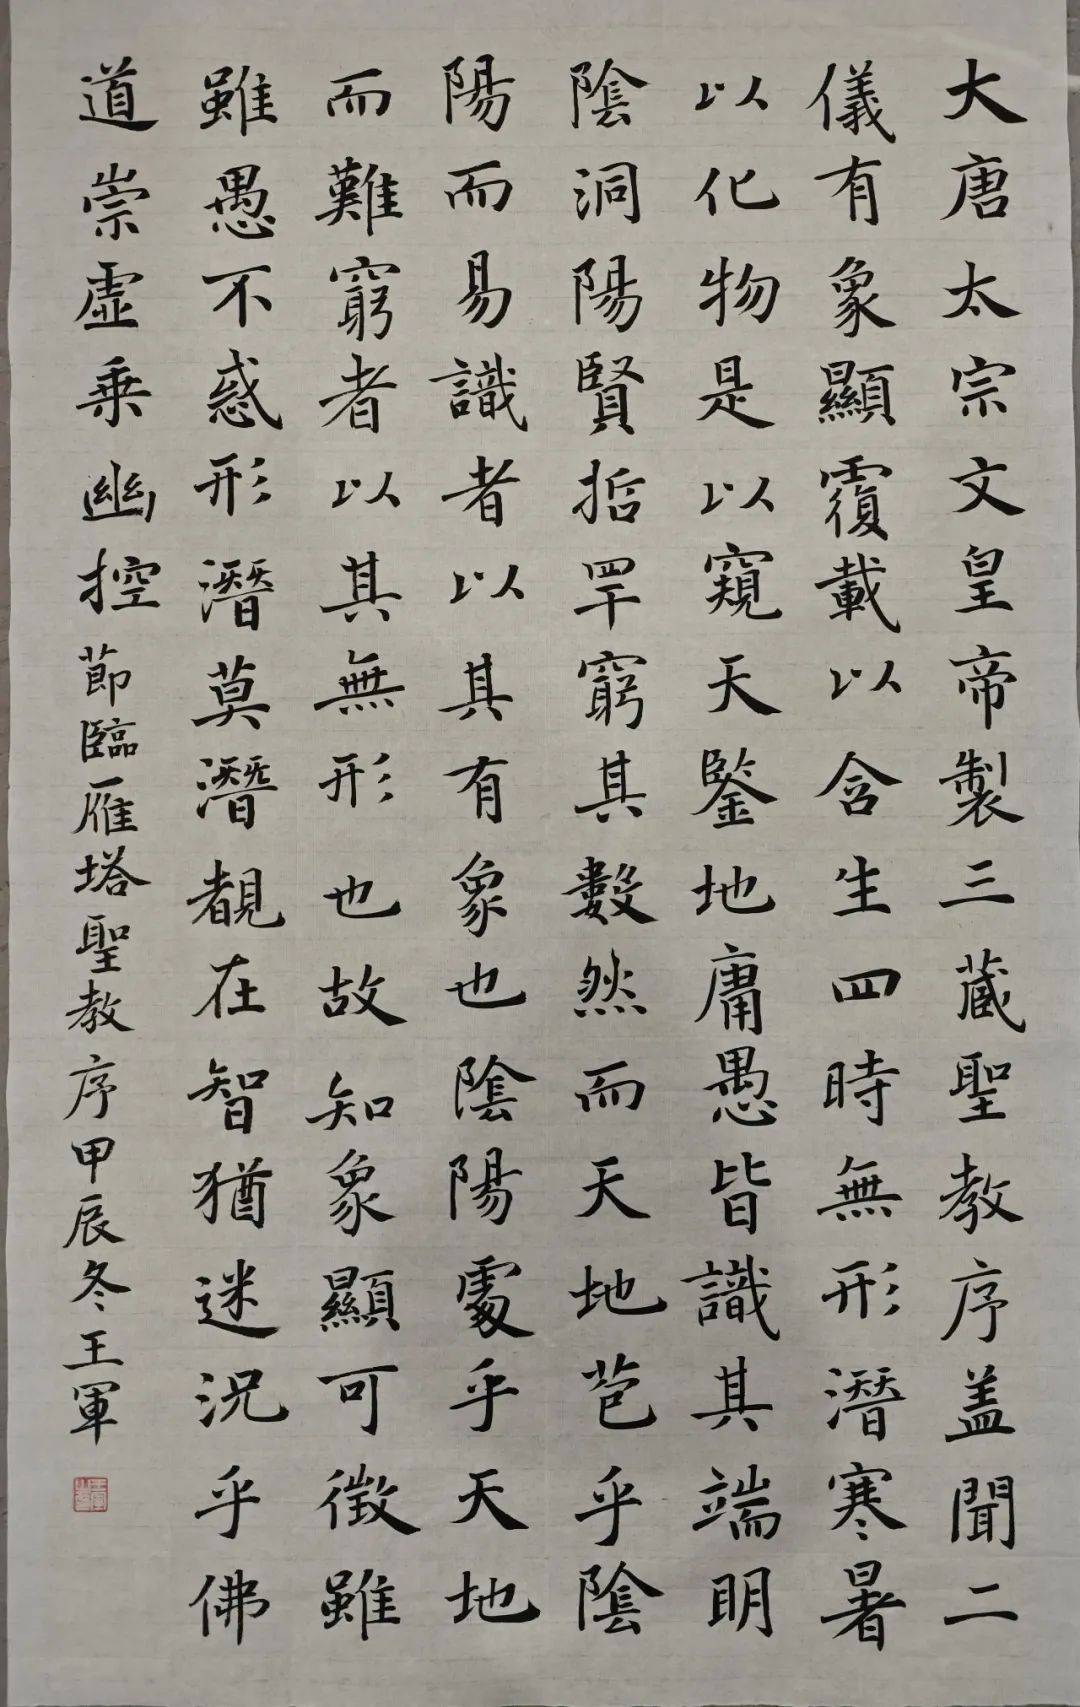 大唐太宗文皇帝製三藏聖教序盖聞二
儀有象顯覆載以含生四時無形潛寒暑
以化物是以窺天鑒地庸愚皆識其端明
陰洞陽賢哲罕窮其數然而天地苞乎陰
陽而易識者以其有象也陰陽處乎天地
而難窮者以其無形也故知象顯可徵雖
雖愚不惑形潛莫潛覩在智猶迷況乎佛
道崇虛乘幽控節臨雁塔聖教序甲辰冬王軍